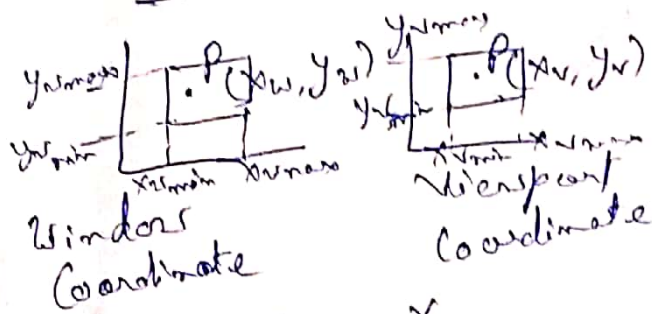 ywmax P(xw, yw)
ywmin
xwmin xwmax
Window
Coordinate
yvmax P(xv, yv)
yvmin
xvmin xvmax
Viewport
Coordinate